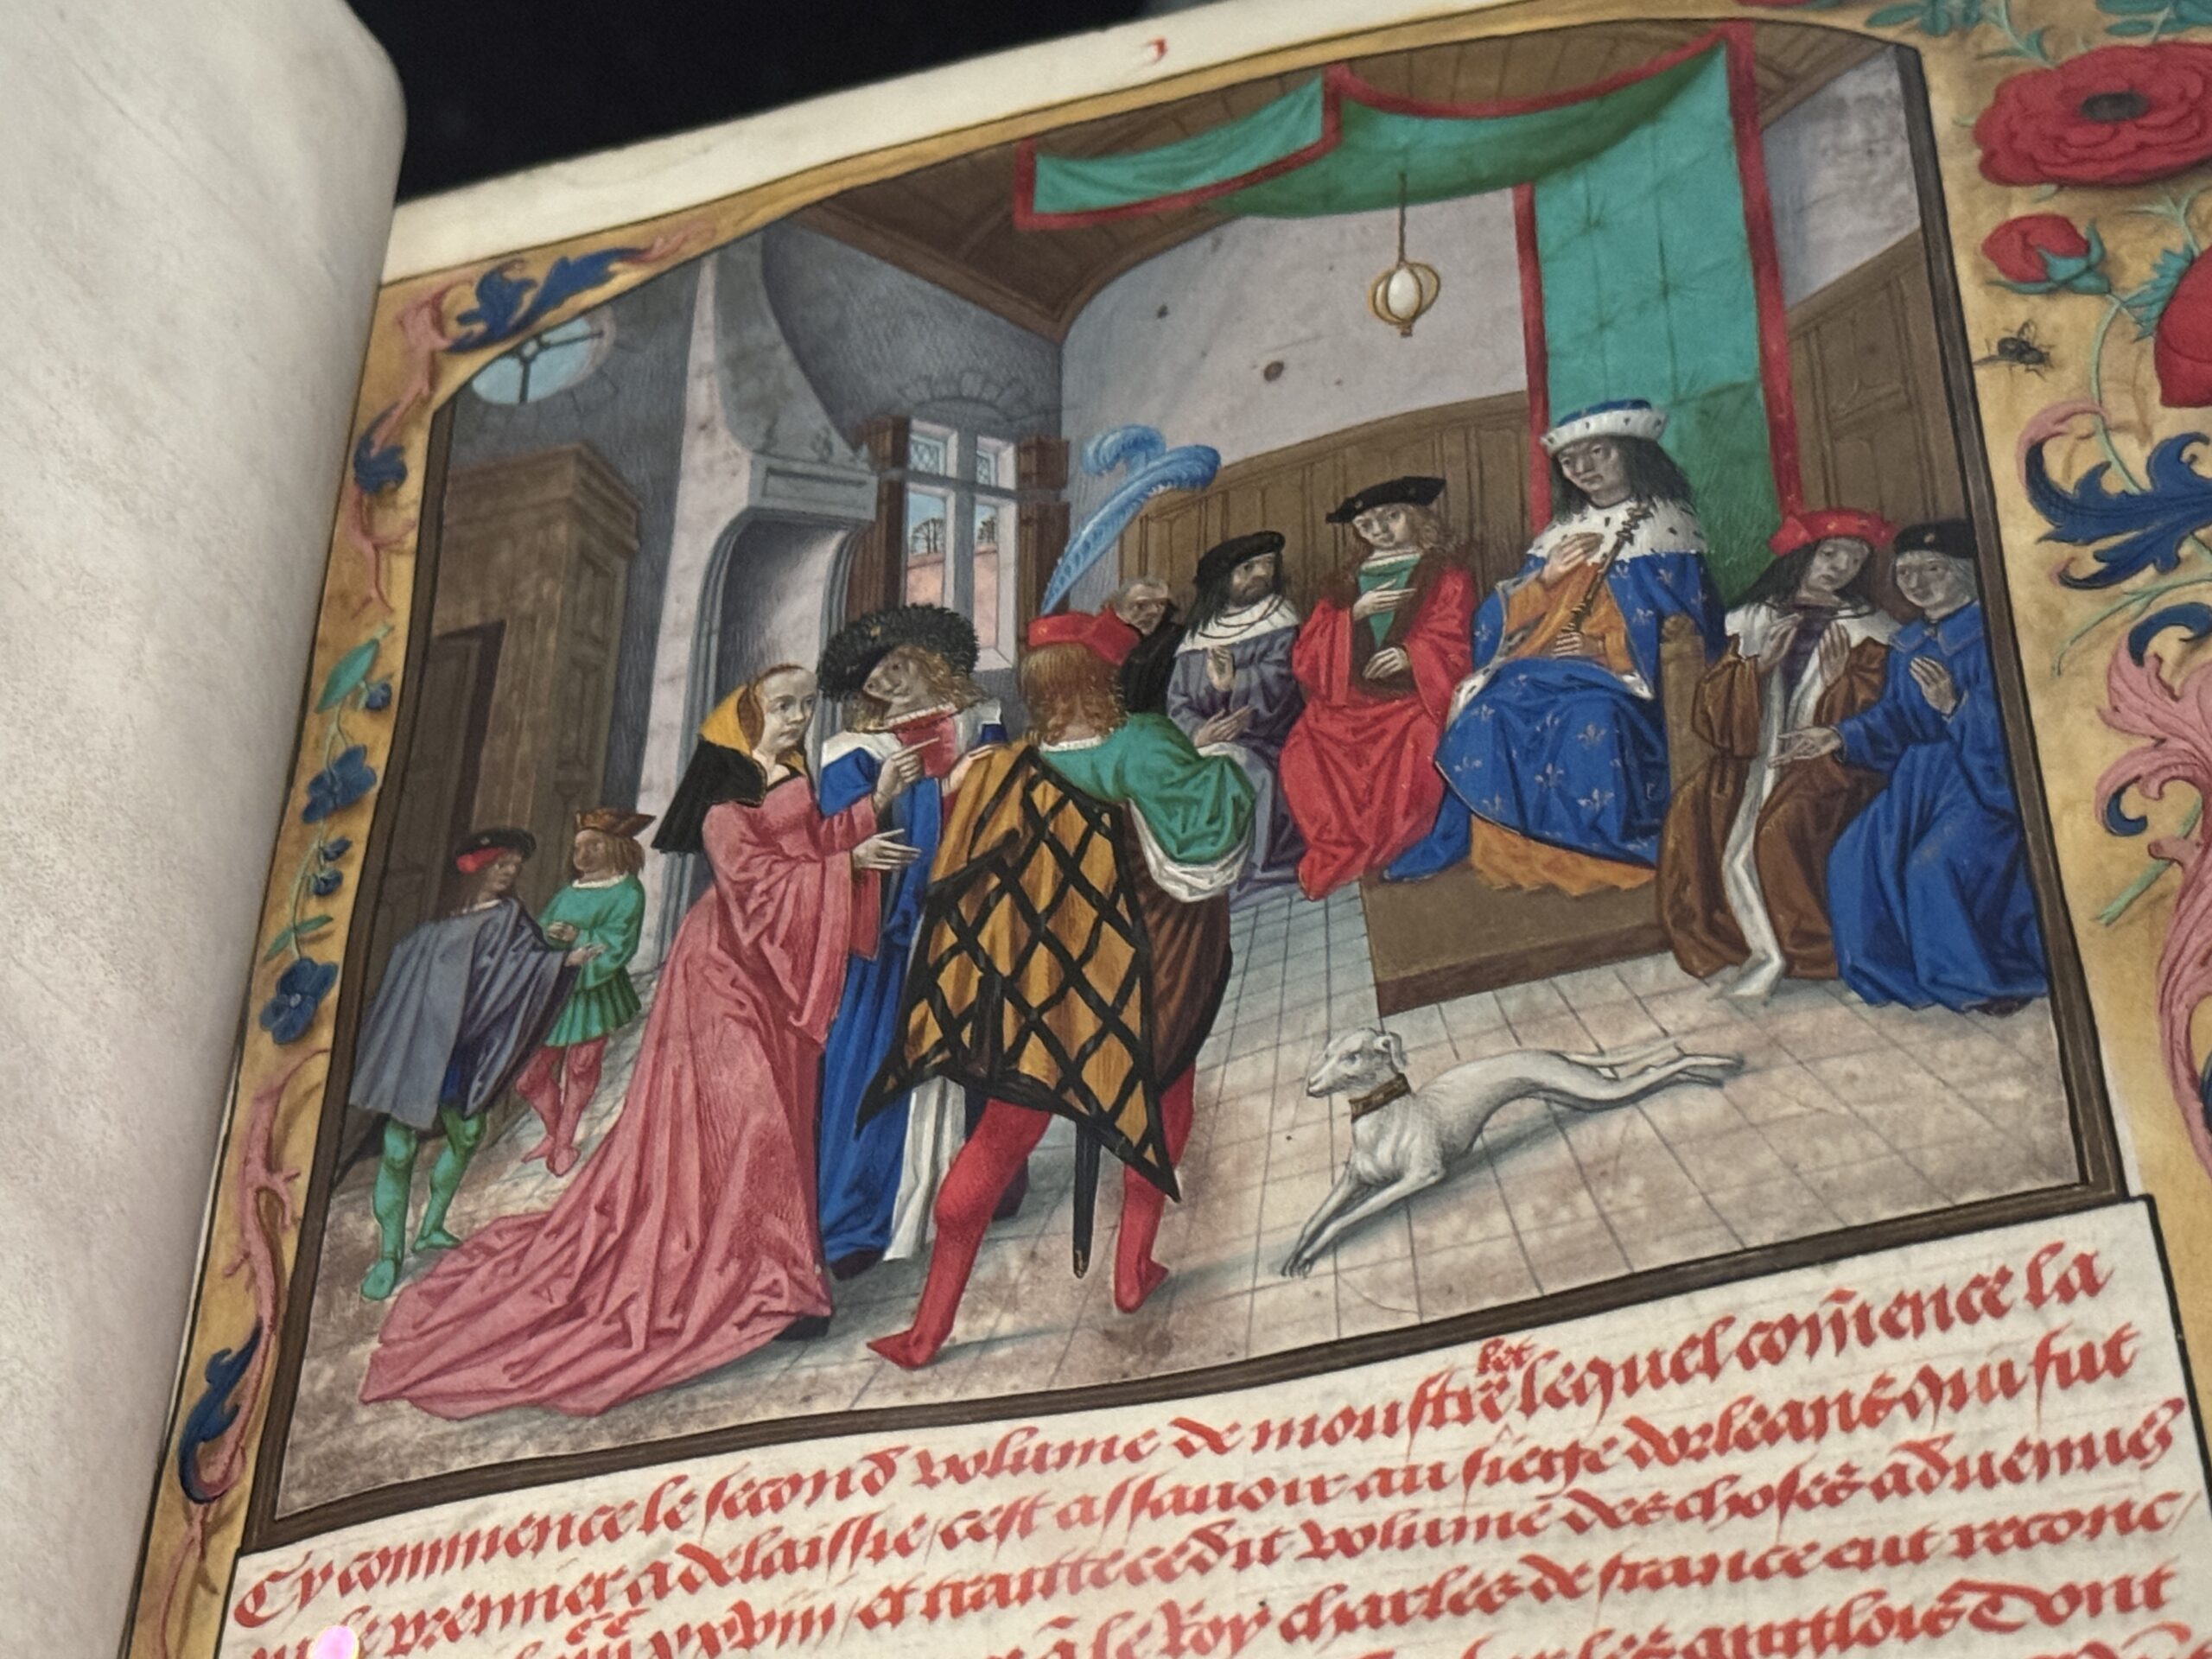 Cy commence le second volume de monstrẽlet lequel com̃ence la
le premier a delaissie / cest assauoir au siege dorleans qui fut
xxviii / et traitte cedit volume des choses aduenues
le Roy charles de france eut reconc
Dont